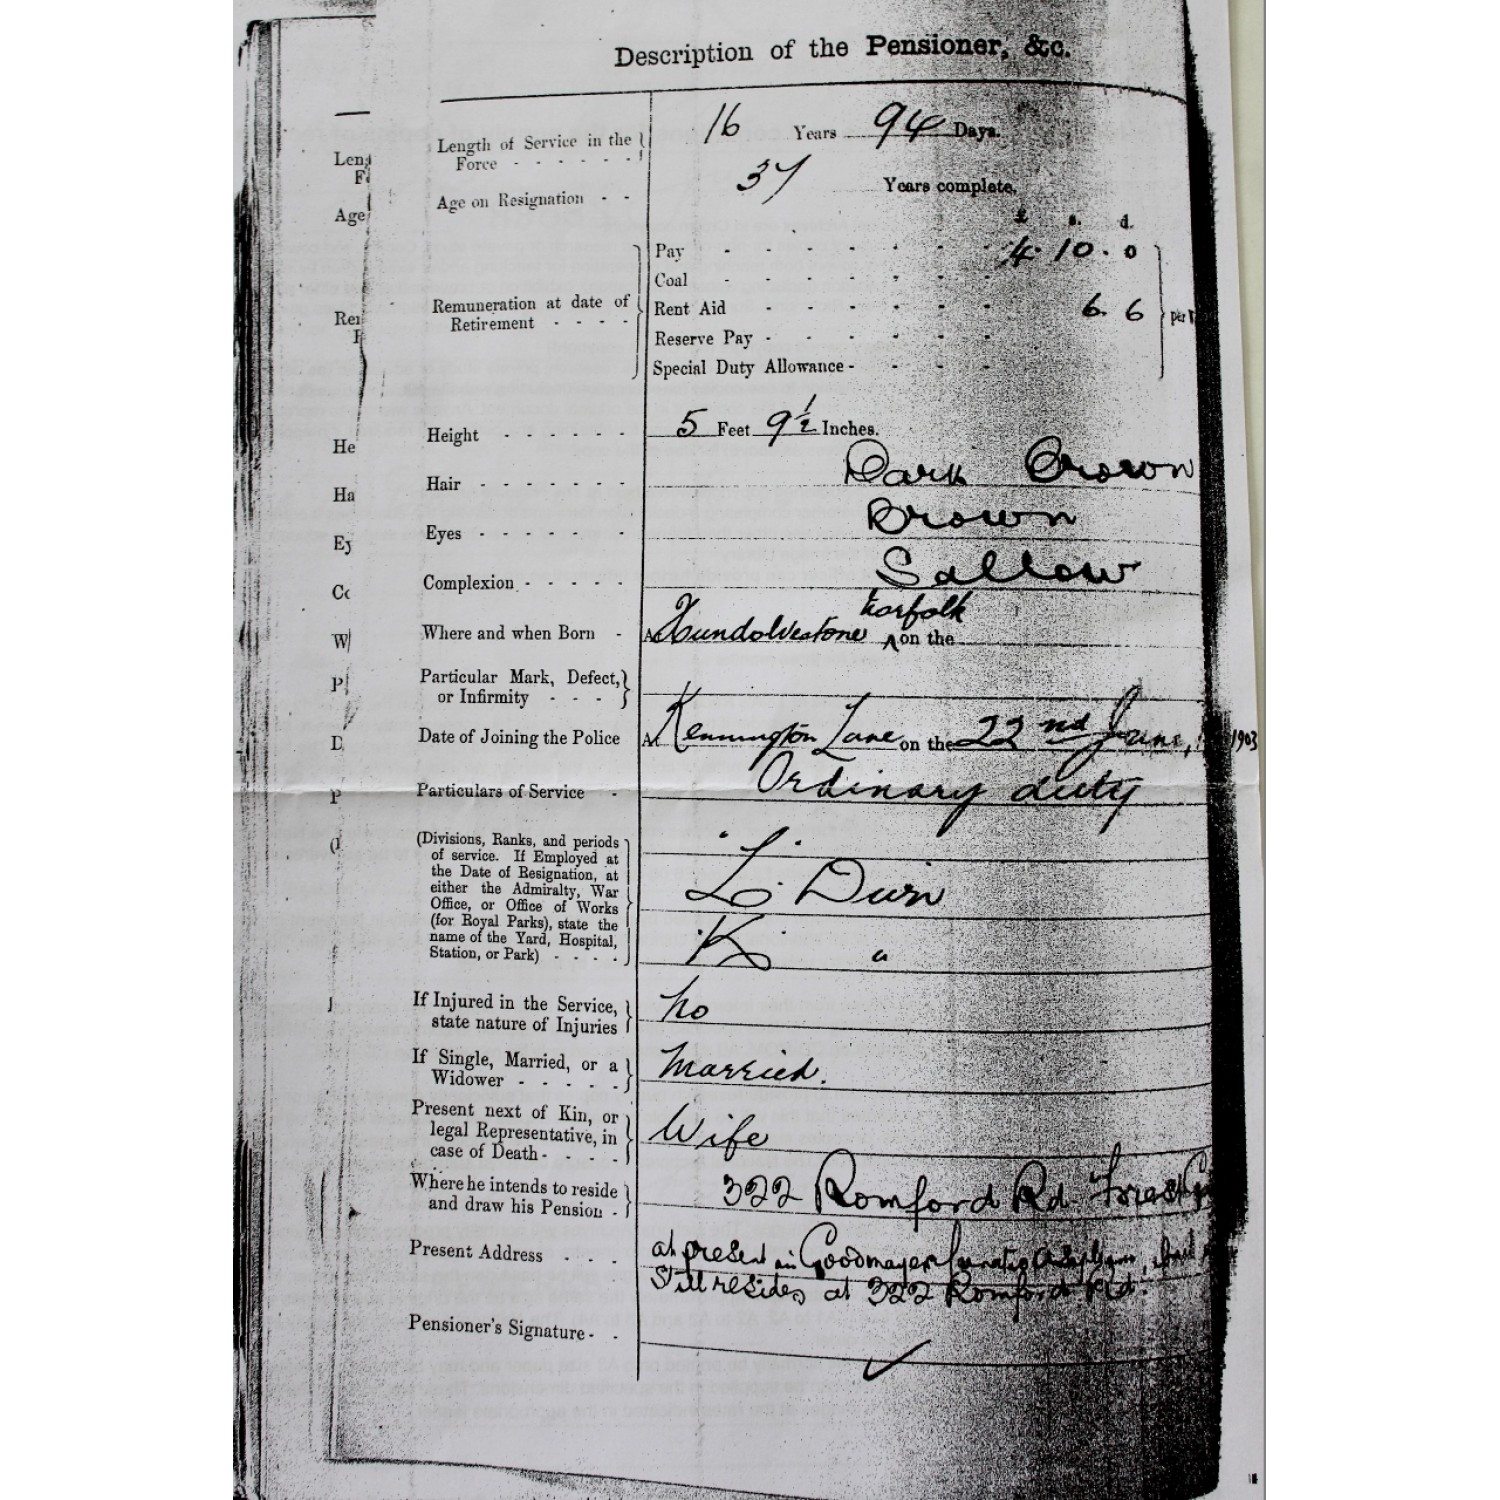 Description of the Pensioner, &c.
Length of Service in the
Force - - - - - -
16 Years 94 Days.
Age on Resignation - -
37 Years complete.
£ s. d.
Remuneration at date of
Retirement - - - -
Pay - - - - - - - 4. 10. 0
Coal - - - - - - -
Rent Aid - - - - - - 6. 6
per
Reserve Pay - - - - - -
Special Duty Allowance - - - -
Height - - - - - - 5 Feet 9½ Inches.
Hair - - - - - - - Dark Brown
Eyes - - - - - - Brown
Complexion - - - - - Sallow
Norfolk
Where and when Born - At Hundolvestone ^ on the
Particular Mark, Defect,
or Infirmity - - - -
Date of Joining the Police At Kennington Lane on the 22nd June, 1903
Particulars of Service - Ordinary duty
(Divisions, Ranks, and periods
of service. If Employed at
the Date of Resignation, at
either the Admiralty, War
Office, or Office of Works
(for Royal Parks), state the
name of the Yard, Hospital,
Station, or Park) - - - -
'L'
L. Divn
'K' "
If Injured in the Service,
state nature of Injuries
No
If Single, Married, or a
Widower - - - - -
Married.
Present next of Kin, or
legal Representative, in
case of Death - - - -
Wife
Where he intends to reside
and draw his Pension -
322 Romford Rd. Forest
Present Address - - -
at present in Goodmayes Lunatic Asylum,
Still resides at 322 Romford Rd.
Pensioner's Signature - -
Len
Age
He
Ha
W
P
D
P